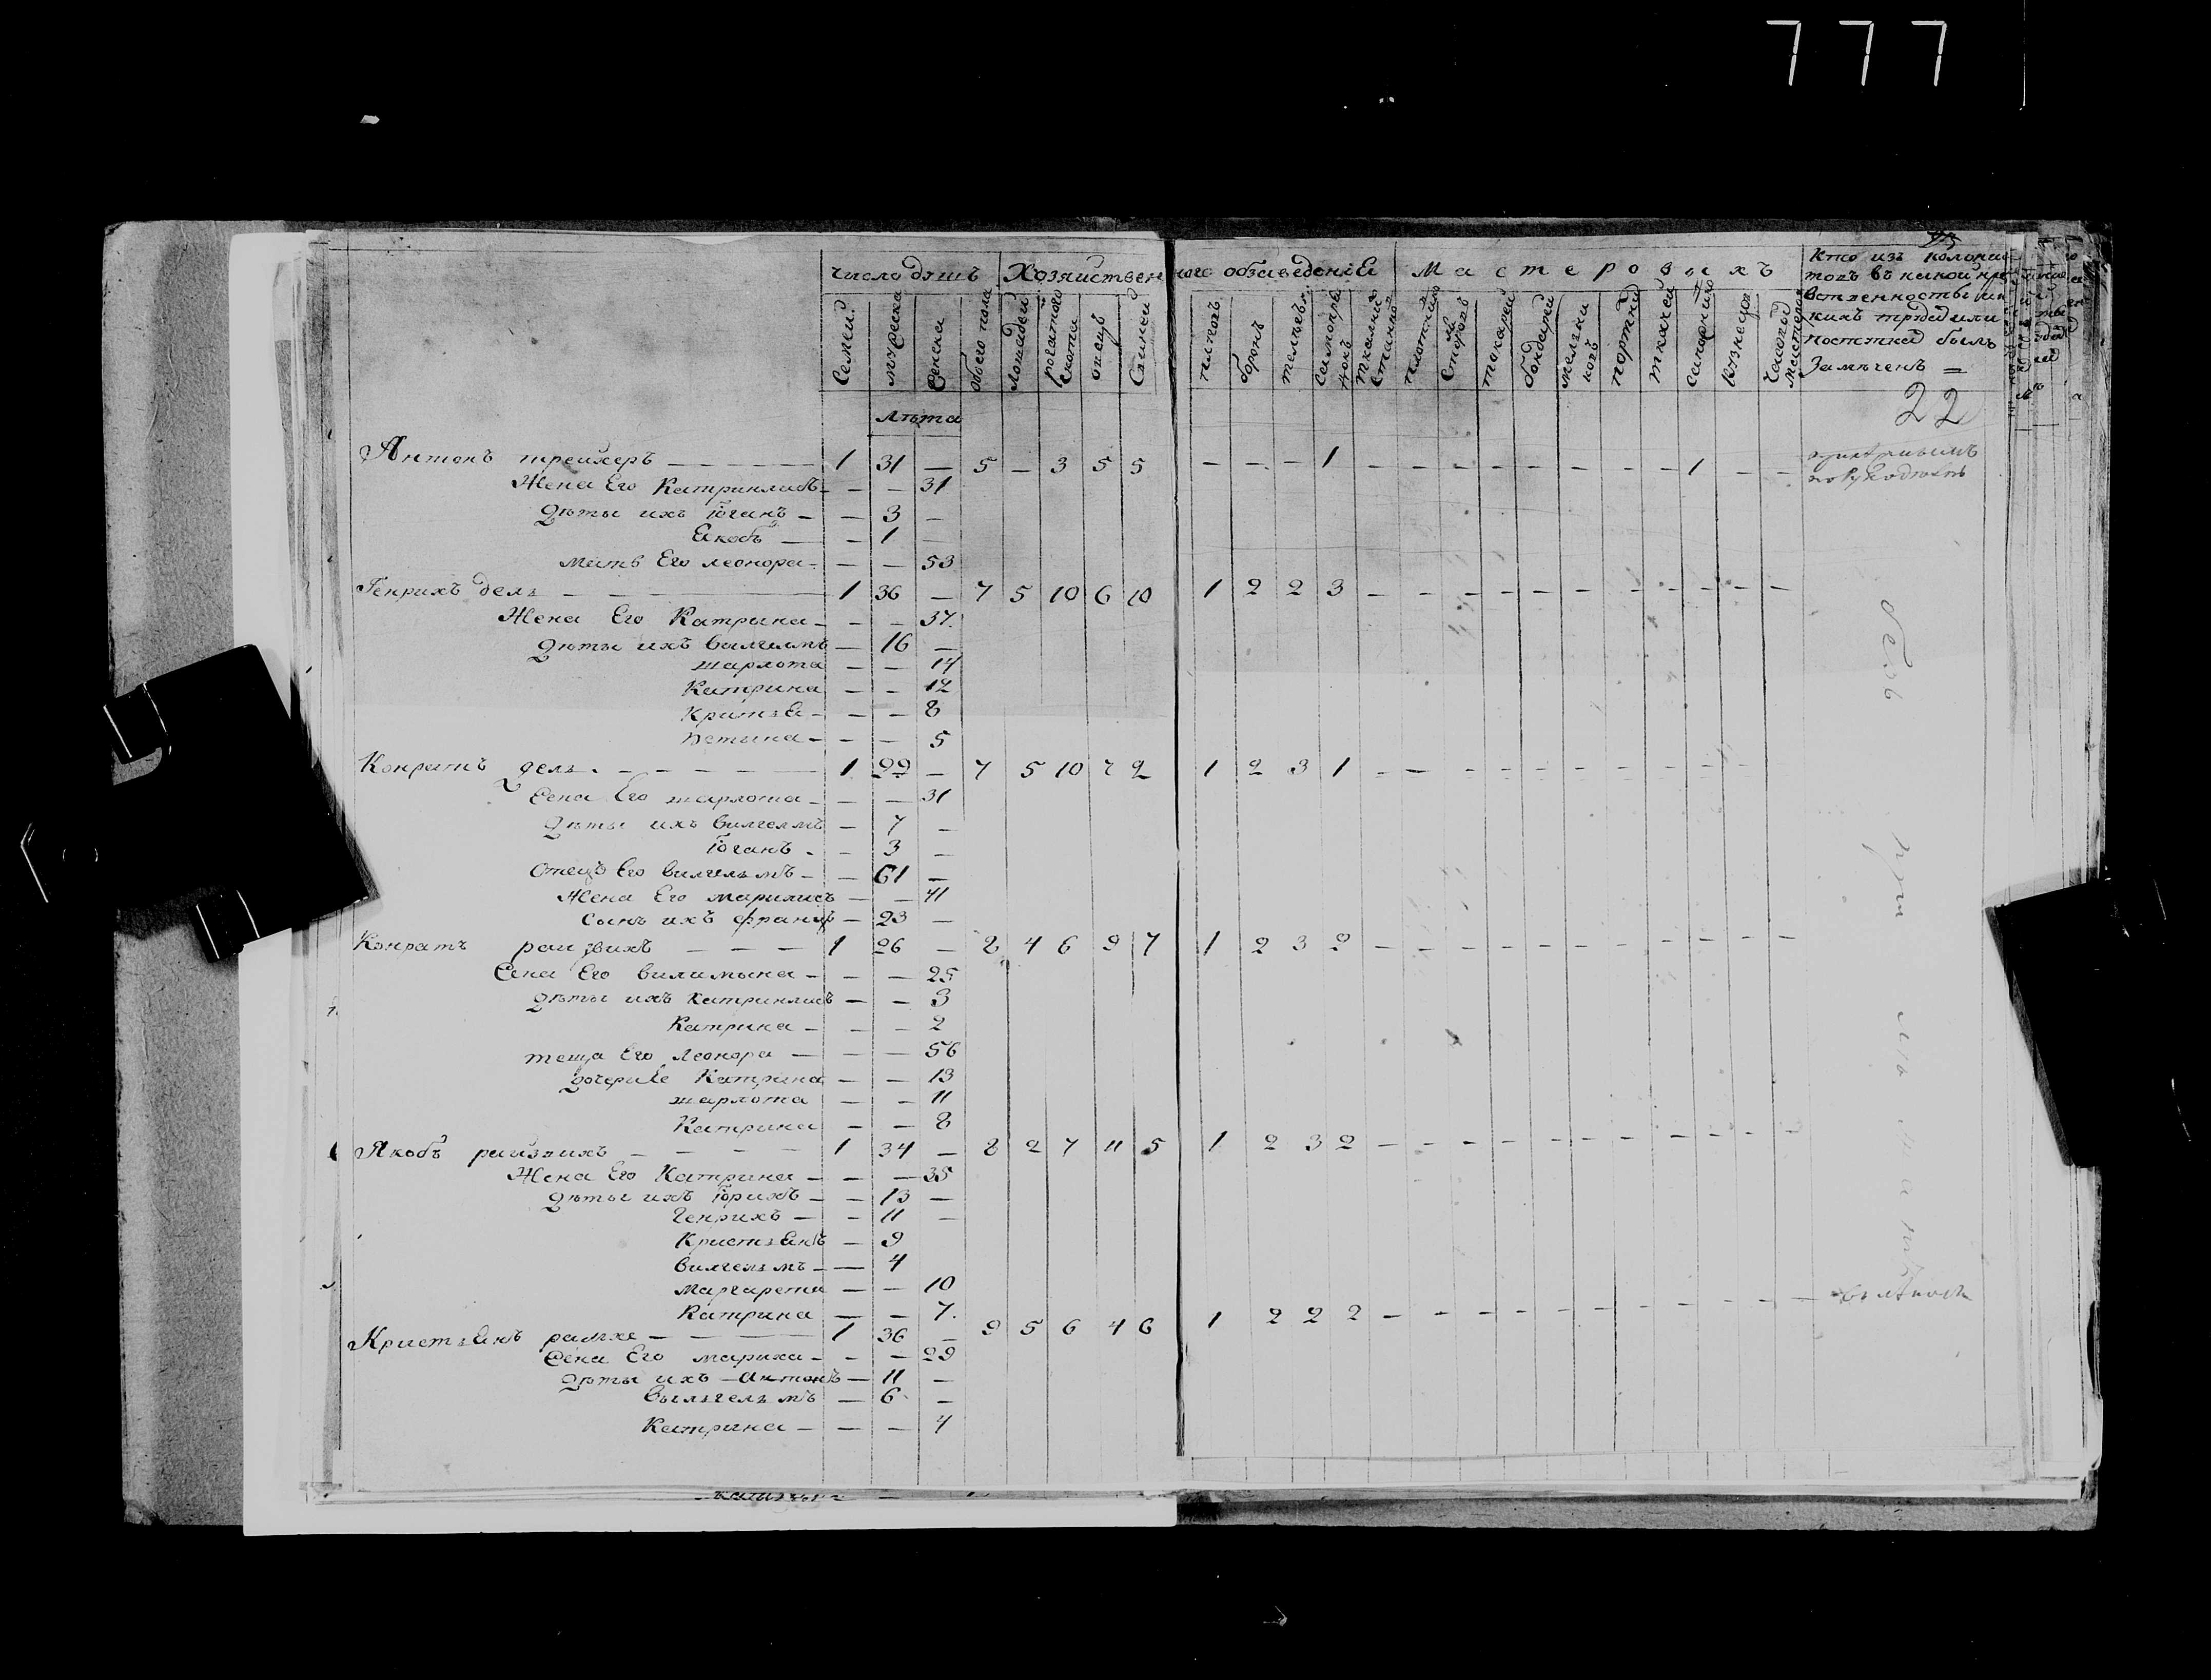 777
число душъ Хозяйственного обзаведенiя Мастеровыхъ
Семей мужеска женска обоего пола лошадей рогатого скота овецъ свиней
плуговъ боронъ телегъ самопрялокъ ткални станко плотник столяръ токарей бондарей мелник портных ткачей сапожник кузнецов часовых мастеров
Кто изъ колонистовъ въ какой
22
лѣта
Антонъ трейхеръ — 1 31 — 5 — 3 5 5 — — — 1 — — — — — — — — 1 — —
Жена Его Катринлисъ — — — 31
Дѣты ихъ Юганъ — — 3 —
Якобъ — — 1 —
мать Его леонора — — — 53
Генрихъ дель — 1 36 — 7 5 10 6 10 1 2 2 3 — — — — — — — — — — —
Жена Его Катрына — — — 37.
Дѣты ихъ вилгелмъ — 16 —
шарлота — — 14
Катрина — — 12
— — 8
— — — 5
Конратъ дель — 1 29 — 7 5 10 7 2 1 2 3 1 — — — — — — — — — —
Жена Его шарлота — — — 31
Дѣты ихъ вилгелмъ — 7 —
Юганъ — — 3 —
Отецъ Его вилгельмъ — — 61 —
Жена Его марилисъ — — 41
Сынъ ихъ францъ — 23 —
Конратъ — 1 26 — 8 4 6 9 7 1 2 3 2 — — — — — — — — — — —
Жена Его вилимына — — — 25
дѣты ихъ катринлисъ — — 3
Катрина — — — 2
теща Его леонора — — — 56
дочери Ее Катрина — — 13
шарлота — — 11
Катрина — — 8
Якобъ — 1 34 — 8 2 7 11 5 1 2 3 2 — — — — — — — — — — —
Жена Его Катрина — — — 35
Дѣты ихъ Юрихъ — — 13 —
Генрихъ — — 11 —
Кристьянъ — 9
вилгельмъ — — 4
маргарета — — 10
Катрина — — 7.
Кристьянъ — 1 36 — 9 5 6 4 6 1 2 2 2 — — — — — — — — — — —
Жена Его — — — 29
Дѣты ихъ Антонъ — 11 —
вылгельмъ — 6 —
Катрина — — — 4